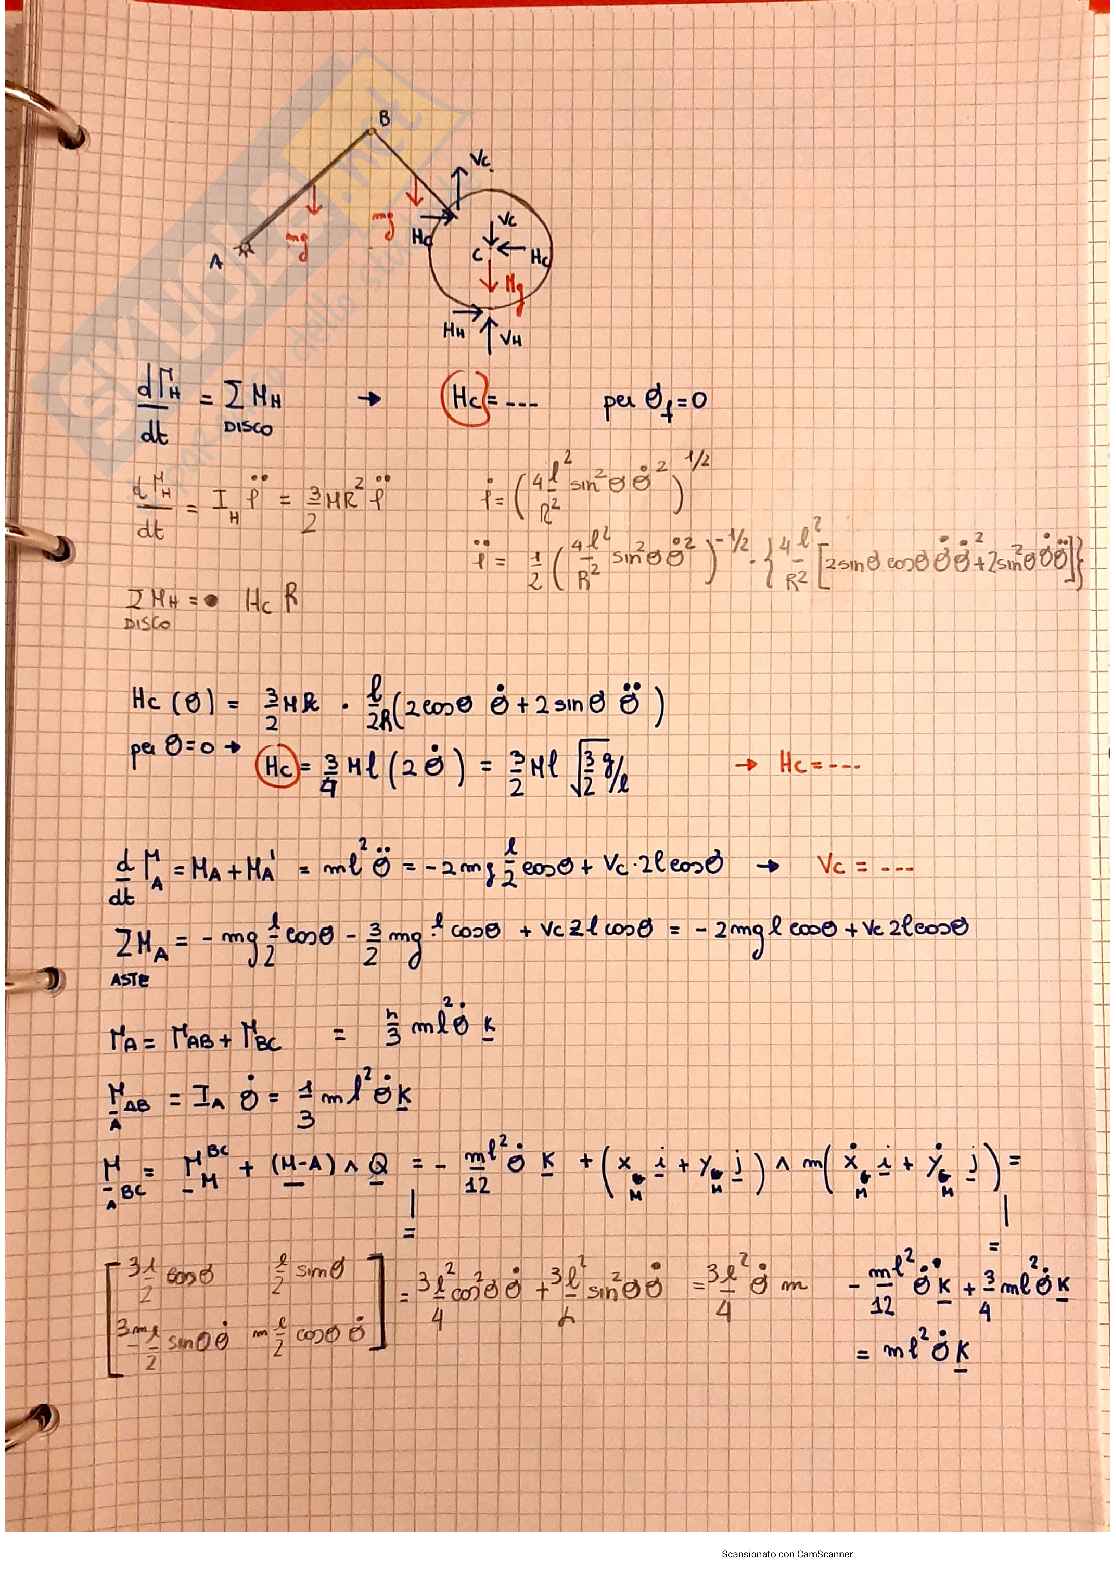 B
Vc
mg
mg
Hc
Vc
A
C
Hc
Mg
HH
VH
dΓH/dt = Σ MH → Hc = --- per θf = 0
DISCO
dΓH/dt = IH φ̈ = 3/2 MR² φ̈ φ̇ = (4l²/R² sin²θ θ̇²)^1/2
φ̈ = 1/2 (4l²/R² sin²θ θ̇²)^-1/2 · {4l²/R² [2sinθ cosθ θ̇ θ̇² + 2sin²θ θ̇ θ̈]}
Σ MH = Hc R
DISCO
Hc (θ) = 3/2 MR · l/2R (2cosθ θ̇ + 2 sinθ θ̈)
per θ=0 → Hc = 3/4 Ml (2θ̇) = 3/2 Ml √(3/2 g/l) → Hc = ---
d/dt ΓA = MA + MA' = ml² θ̈ = -2mg l/2 cosθ + Vc·2l cosθ → Vc = ---
ΣMA = - mg l/2 cosθ - 3/2 mg l cosθ + Vc 2l cosθ = - 2mg l cosθ + Vc 2l cosθ
ASTE
ΓA = ΓAB + ΓBC = 4/3 ml² θ̇ k
ΓA AB = IA θ̇ = 1/3 ml² θ̇ k
ΓA BC = ΓM BC + (M-A) ∧ Q = - ml²/12 θ̇ k + (xM i + yM j) ∧ m(ẋM i + ẏM j) =
= =
[3l/2 cosθ l/2 sinθ
-3ml/2 sinθ θ̇ m l/2 cosθ θ̇] = 3l²/4 cos²θ θ̇ + 3l²/4 sin²θ θ̇ = 3l²/4 θ̇ m - ml²/12 θ̇ k + 3/4 ml² θ̇ k
= ml² θ̇ k
Scansionato con CamScanner